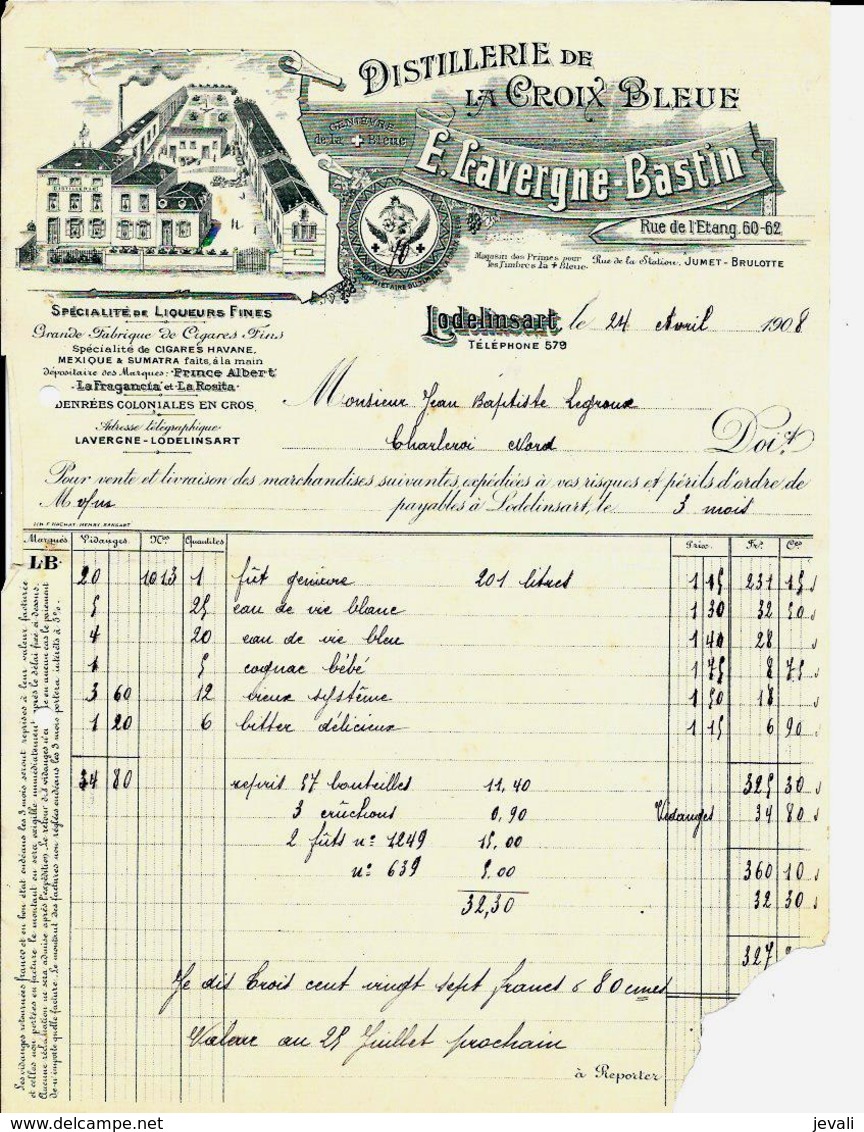 DISTILLERIE DE
LA CROIX BLEUE
GENIÈVRE
de la + Bleue
E. Lavergne-Bastin
Rue de l'Etang, 60-62
DISTILLERIE
Magasin des Primes pour
les Timbres la + Bleue
Rue de la Station, JUMET-BRULOTTE
SPÉCIALITÉ DE LIQUEURS FINES
Grande Fabrique de Cigares Fins
Spécialité de CIGARES HAVANE,
MEXIQUE & SUMATRA faits à la main
dépositaire des Marques: Prince Albert
La Fragancia et La Rosita
DENRÉES COLONIALES EN GROS
Adresse télégraphique
LAVERGNE-LODELINSART
Lodelinsart, le 24 Avril 1908
TÉLÉPHONE 579
Monsieur Jean Baptiste Legroux
Charleroi Nord
Doit
Pour vente et livraison des marchandises suivantes, expédiées à vos risques et périls d'ordre de
M payables à Lodelinsart, le 3 mois
Marques Vidanges Nos Quantités Prix Frs Ces
LB 20 1013 1 fût genièvre 201 litres 1 15 231 15
5 25 eau de vie blanc 1 30 32 50
4 20 eau de vie bleu 1 40 28
1 5 cognac bébé 1 75 8 75
3 60 12 vieux système 1 50 18
1 20 6 bitter délicieux 1 15 6 90
34 80 reprit 57 bouteilles 11,40 325 30
3 crûchons 0,90 Vidanges 34 80
2 fûts no 1249 15.00
no 639 5.00 360 10
32,30 32 30
327
Je dis Trois cent vingt sept francs & 80 cmes
Valeur au 25 Juillet prochain
à Reporter
Les vidanges retournées franco et en bon état endéans les 3 mois seront reprises à leur valeur facturée
et celles non portées en facture le montant en sera exigible immédiatement après le délai fixé ci-dessus.
Aucune réclamation ne sera admise après l'expédition, le retour des vidanges n'en
de n'importe quelle facture. Le montant des factures non réglées endéans les 3 mois portera intérêts à 5%.
jevali
delcampe.net